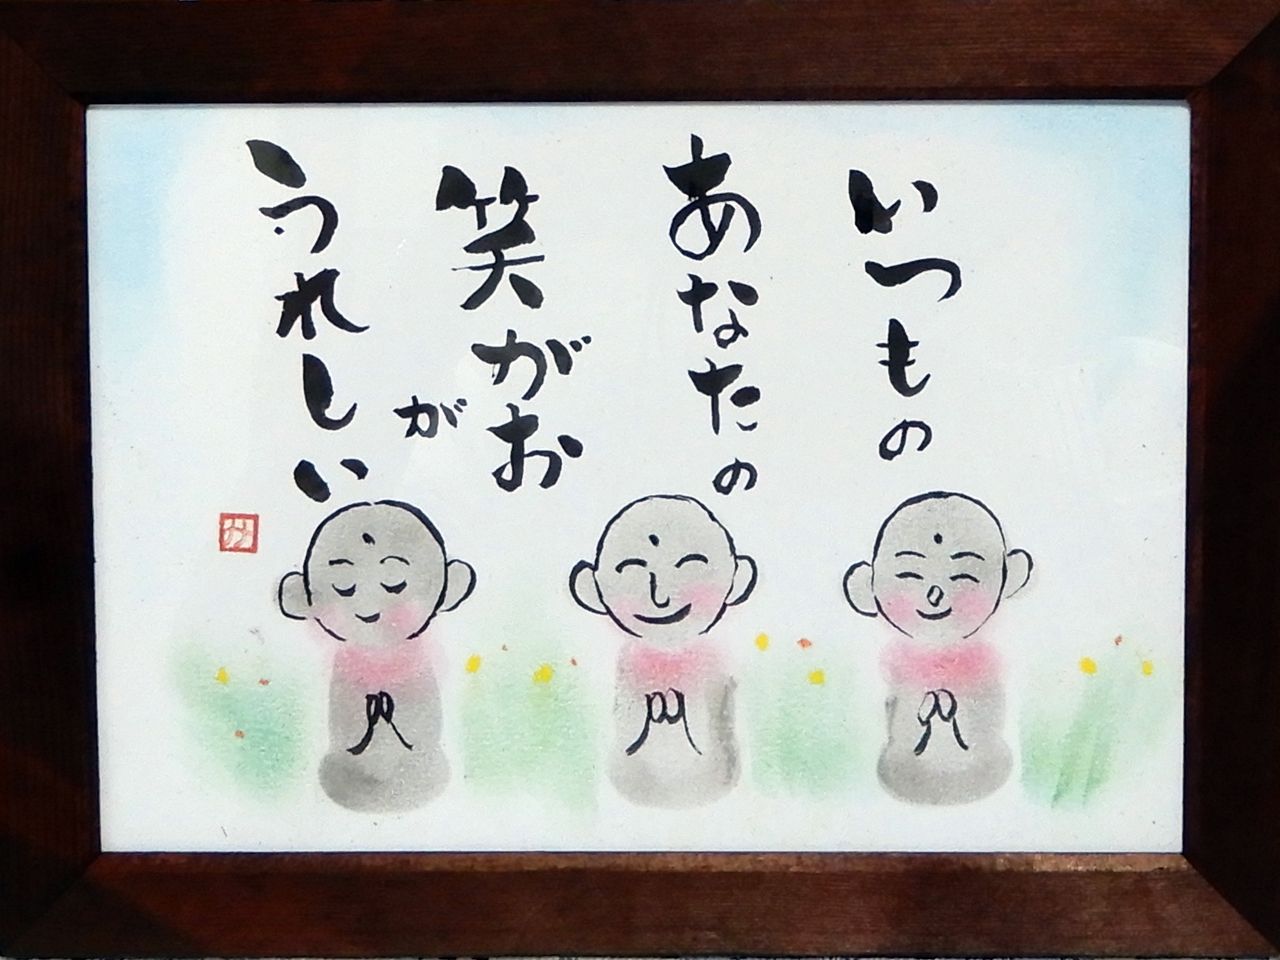 いつもの
あなたの
笑がお
が
うれしい